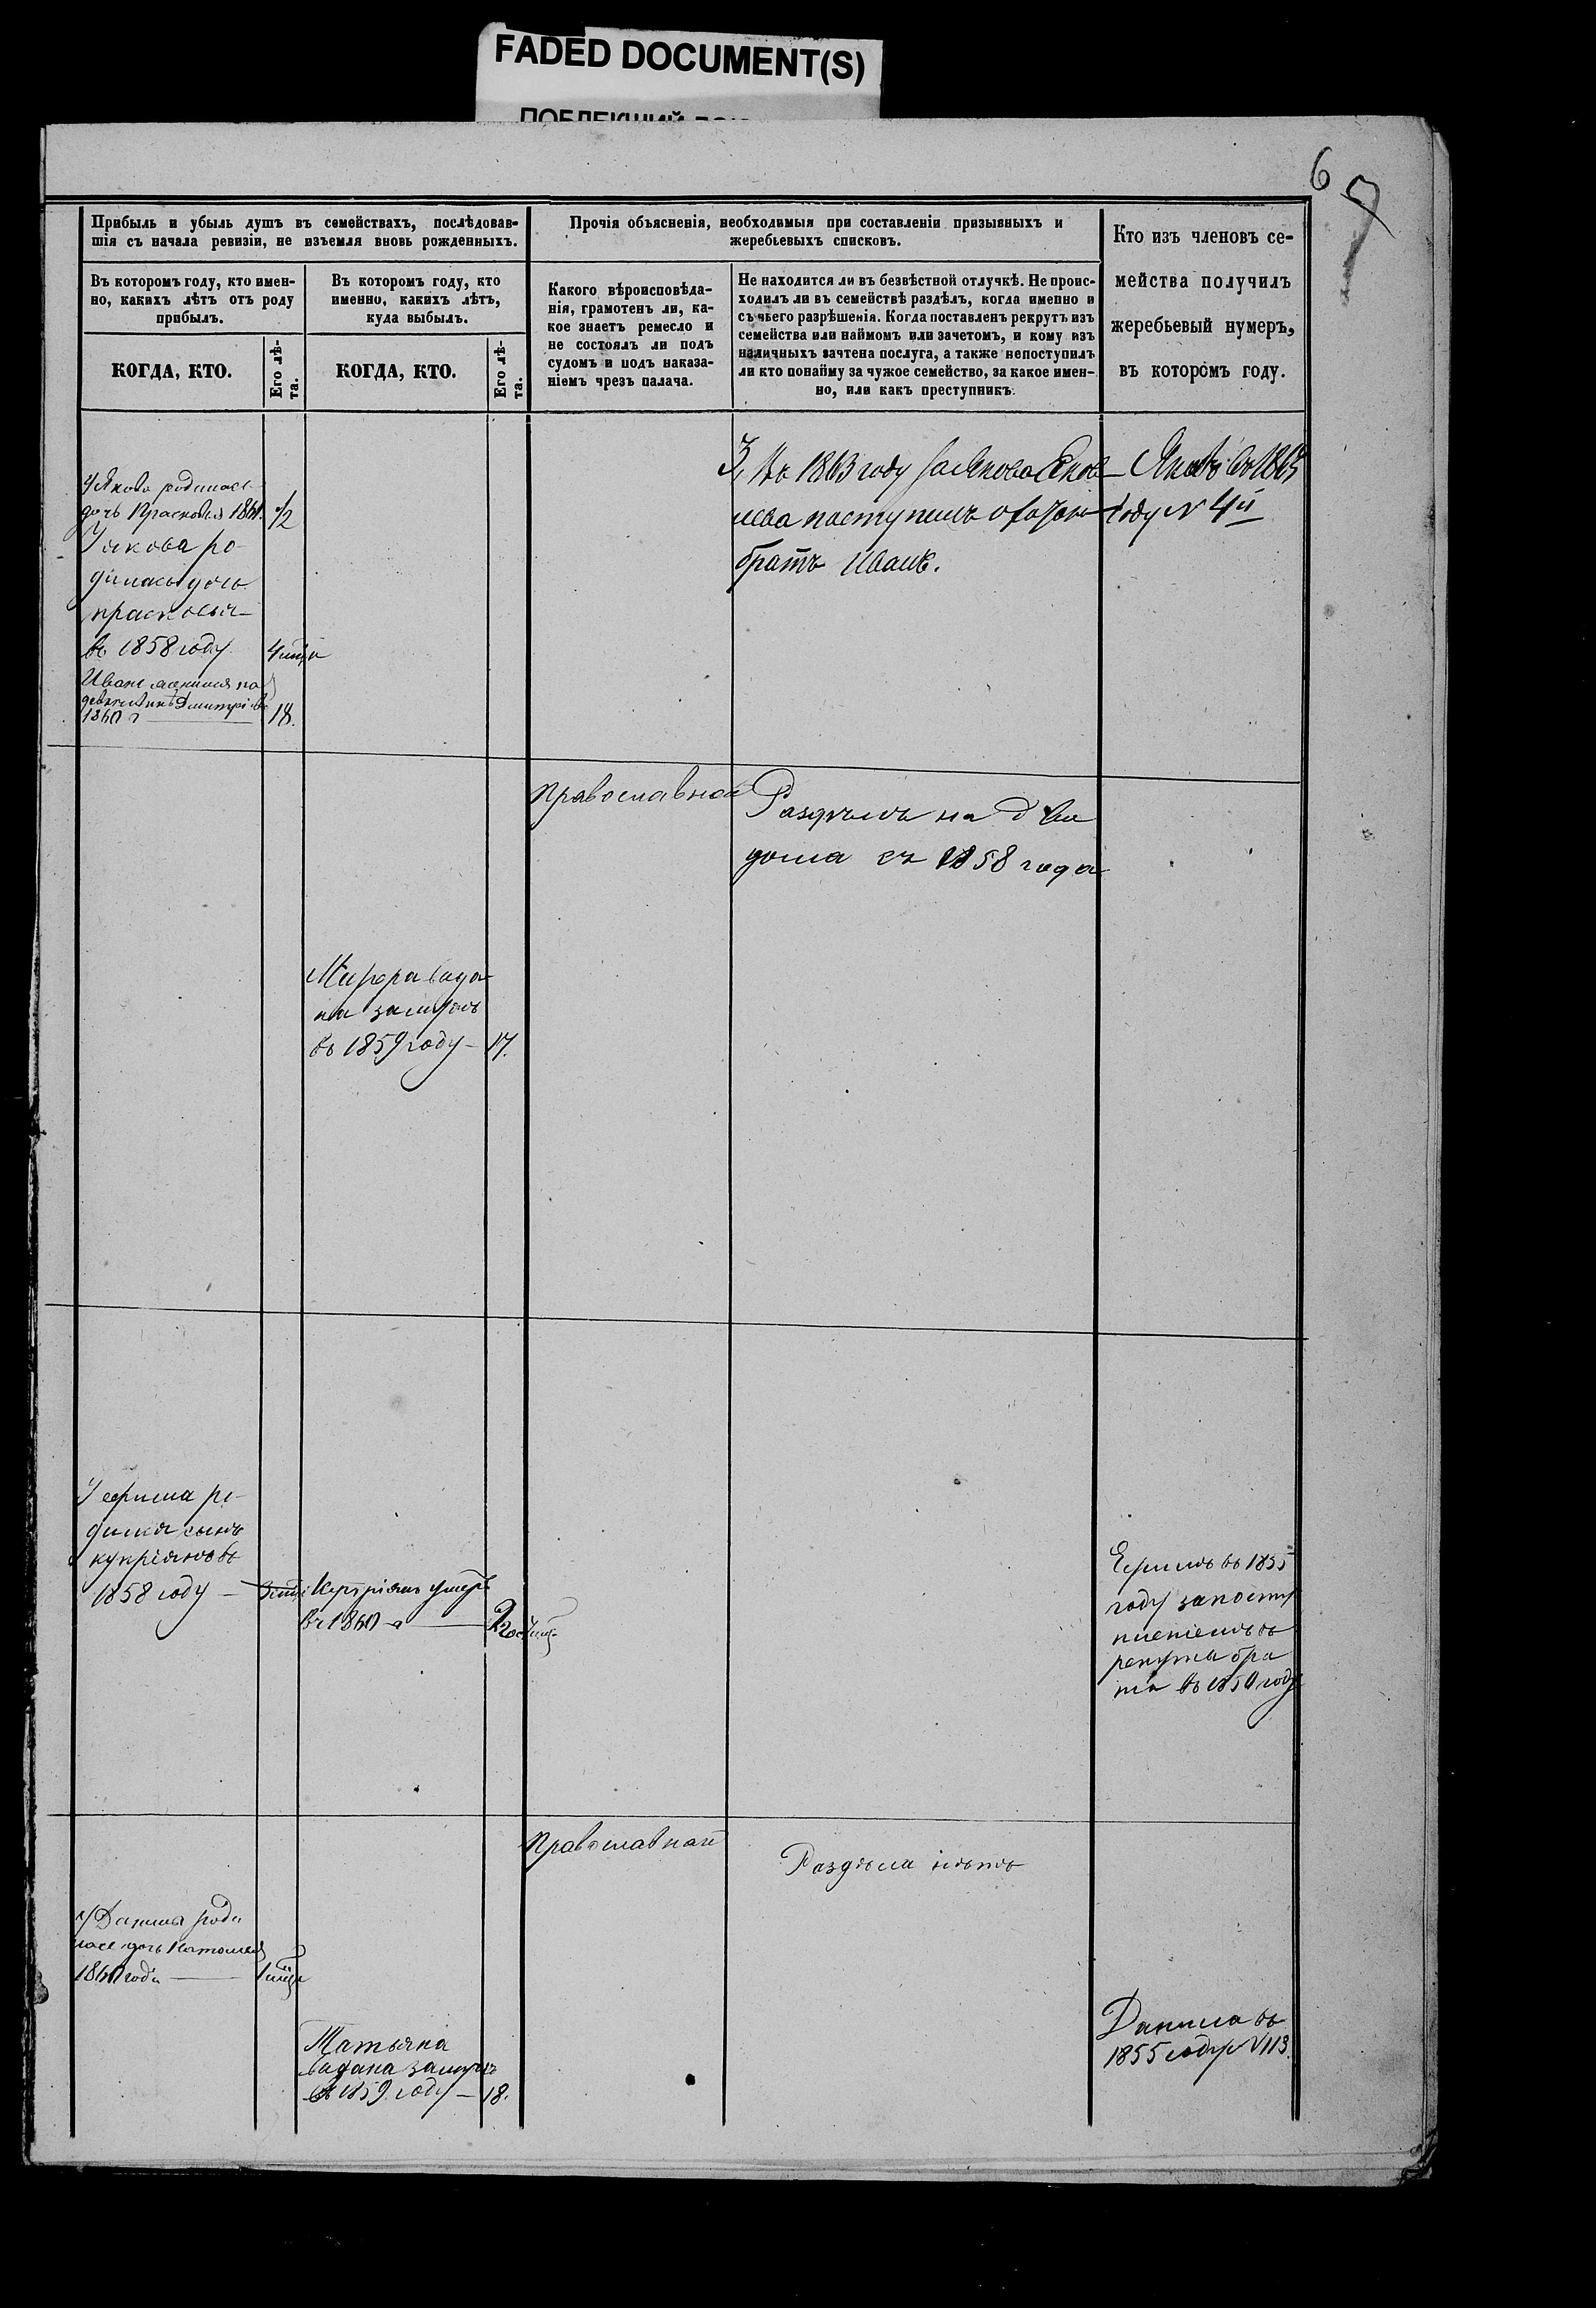 FADED DOCUMENT(S)
6
7
Прибыль и убыль душъ въ семействахъ, послѣдовав-
шія съ начала ревизіи, не изъемля вновь рожденныхъ.
Прочія объясненія, необходимыя при составленіи призывныхъ и
жеребьевыхъ списковъ.
Кто изъ членовъ се-
мейства получилъ
жеребьевый нумеръ,
въ которомъ году.
Въ которомъ году, кто имен-
но, какихъ лѣтъ отъ роду
прибылъ.
Въ которомъ году, кто
именно, какихъ лѣтъ,
куда выбылъ.
Какого вѣроисповѣда-
нія, грамотенъ ли, ка-
кое знаетъ ремесло и
не состоялъ ли подъ
судомъ и подъ наказа-
ніемъ чрезъ палача.
Не находится ли въ безвѣстной отлучкѣ. Не проис-
ходилъ ли въ семействѣ раздѣлъ, когда именно и
съ чьего разрѣшенія. Когда поставленъ рекрутъ изъ
семейства или наймомъ или зачетомъ, и кому изъ
наличныхъ зачтена послуга, а также непоступилъ
ли кто понайму за чужое семейство, за какое имен-
но, или какъ преступникъ.
КОГДА, КТО.
Его лѣ-
та.
КОГДА, КТО.
Его лѣ-
та.
У Якова родилась
дочь Прасковья 1861. 1/2
У якова ро-
дилась дочь
прасковья
въ 1858 году
Иванъ
Дмитрі
18.
3, Въ 1863 году за Якова Яков
лева поступилъ
братъ Иванъ.
Яковъ въ 1863
году N 4й
Православной
Раздѣлъ на два
дома съ 1858 года
выда
на замужъ
въ 1859 году - 17.
У ефима ро-
дился сынъ
купріянъ въ
1858 году
Купріянъ умеръ
въ 1860
Ефимъ въ 1855
году за посту
пленіемъ въ
рекруты бра
та въ 1854 году
Православной
Раздѣла нѣтъ
У Данилы роди
лась дочь
1860 года
Татьяна
выдана замужъ
въ 1859 году - 18.
Данила въ
1855 году N 113.